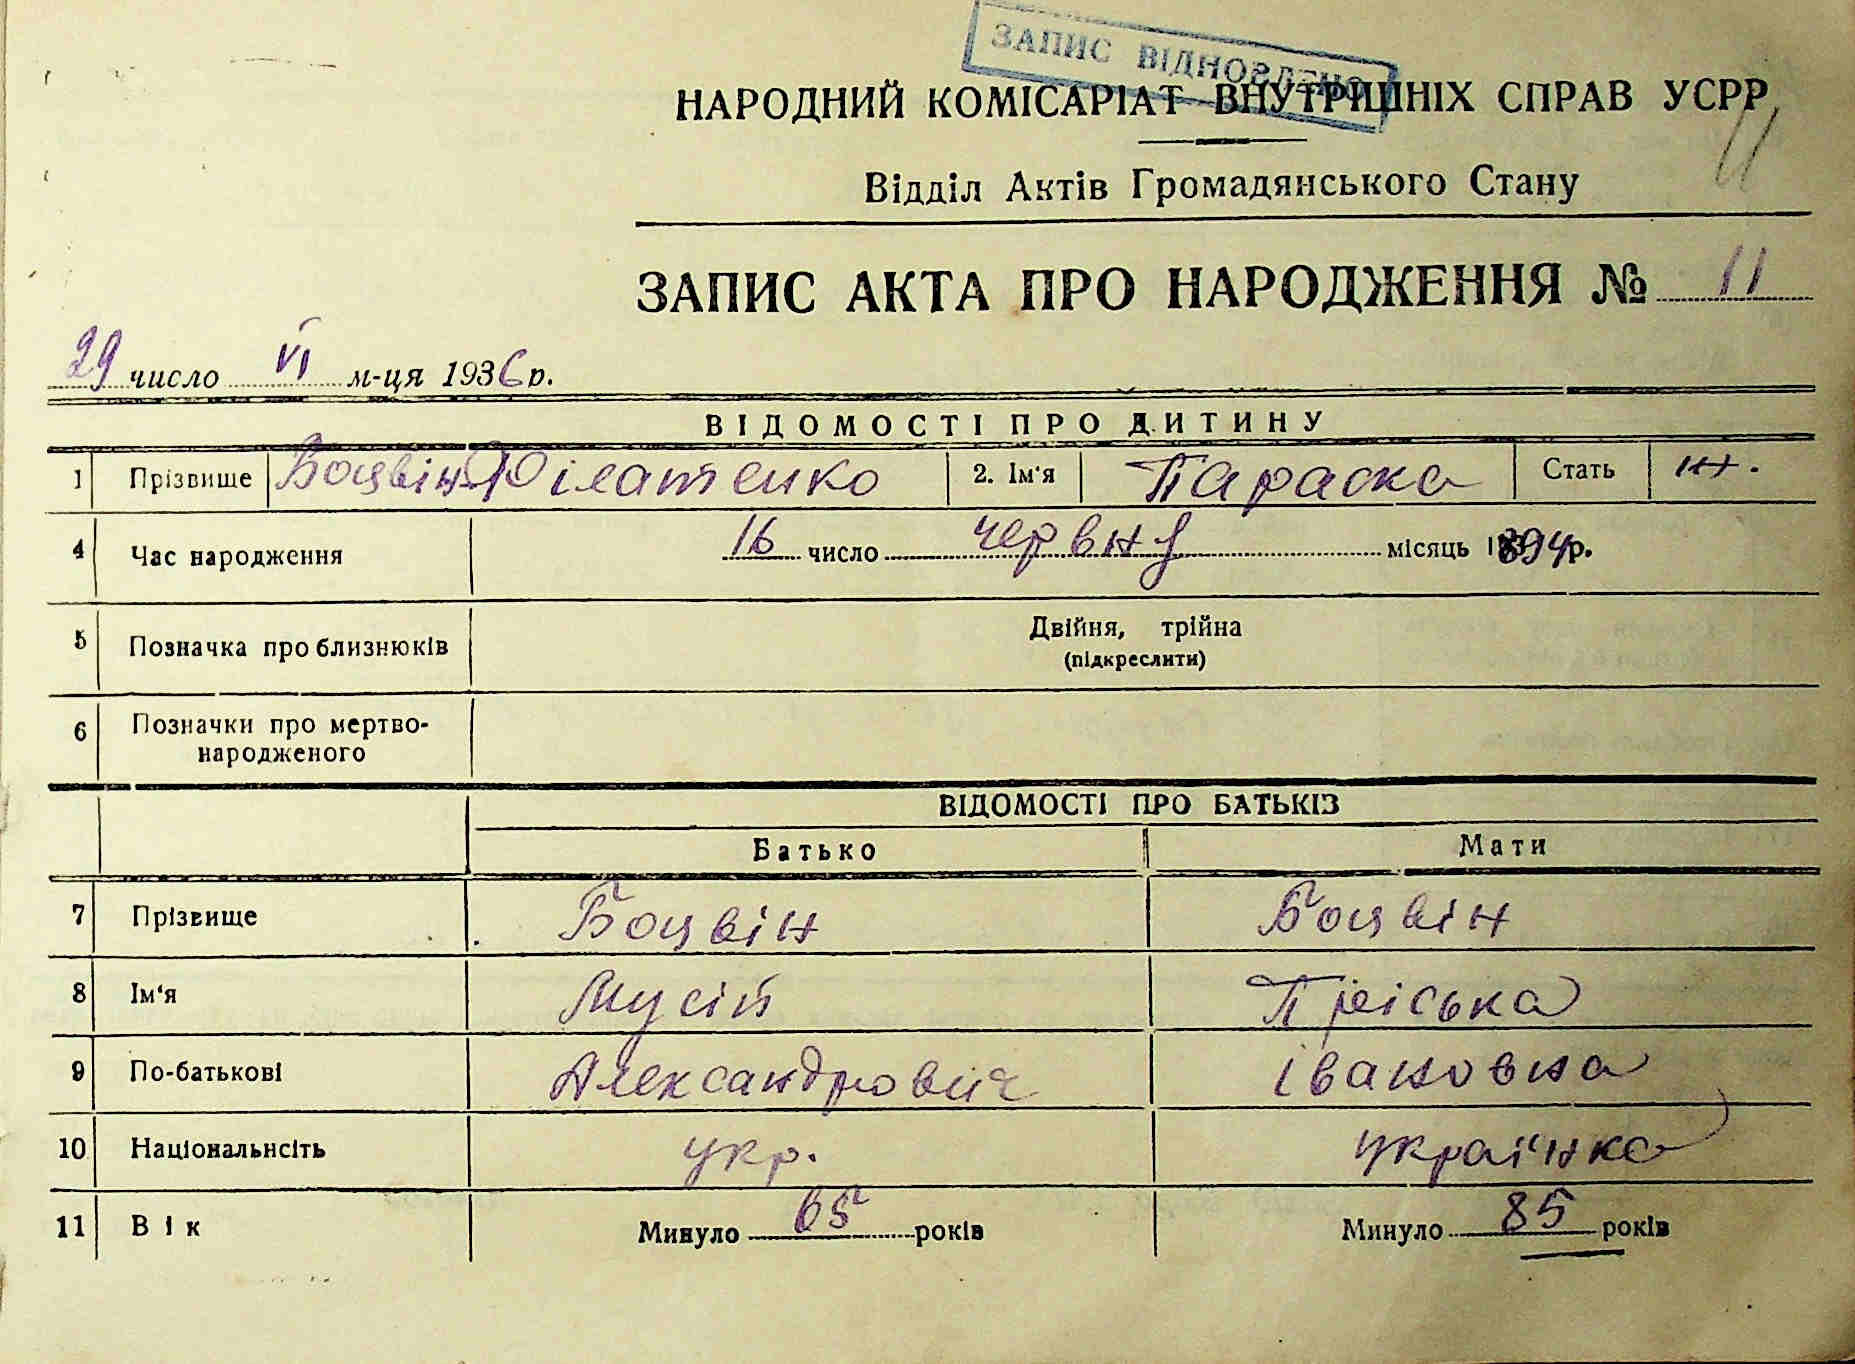 ЗАПИС ВІДНОВЛЕНО
НАРОДНИЙ КОМІСАРІАТ ВНУТРІШНІХ СПРАВ УСРР
11
Відділ Актів Громадянського Стану
ЗАПИС АКТА ПРО НАРОДЖЕННЯ № 11
29 число VI м-ця 1936 р.
ВІДОМОСТІ ПРО ДИТИНУ
1 Прізвище Боцвін-Філатенко 2. Ім'я Параска Стать ж.
4 Час народження 16 число червня місяць 1894 р.
5 Позначка про близнюків Двійня, трійна
(підкреслити)
6 Позначки про мертво-
народженого
ВІДОМОСТІ ПРО БАТЬКІЗ
Батько Мати
7 Прізвище Боцвін Боцвін
8 Ім'я Мусій Пріська
9 По-батькові Александрович Івановна
10 Національнсіть укр. українка
11 Вік Минуло 65 років Минуло 85 років